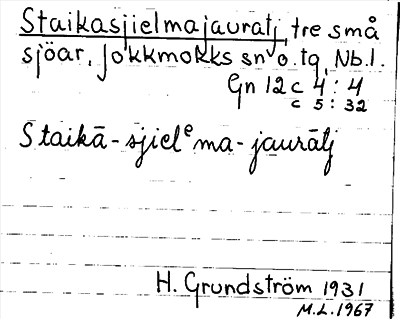 Staikasjielmajauratj, tre små
sjöar, Jokkmokks sn o. tg, Nb.l.
Gn 12 c 4 : 4
c 5 : 32
Staikā-sjielᵉma-jaurātj
H. Grundström 1931
M.L. 1967